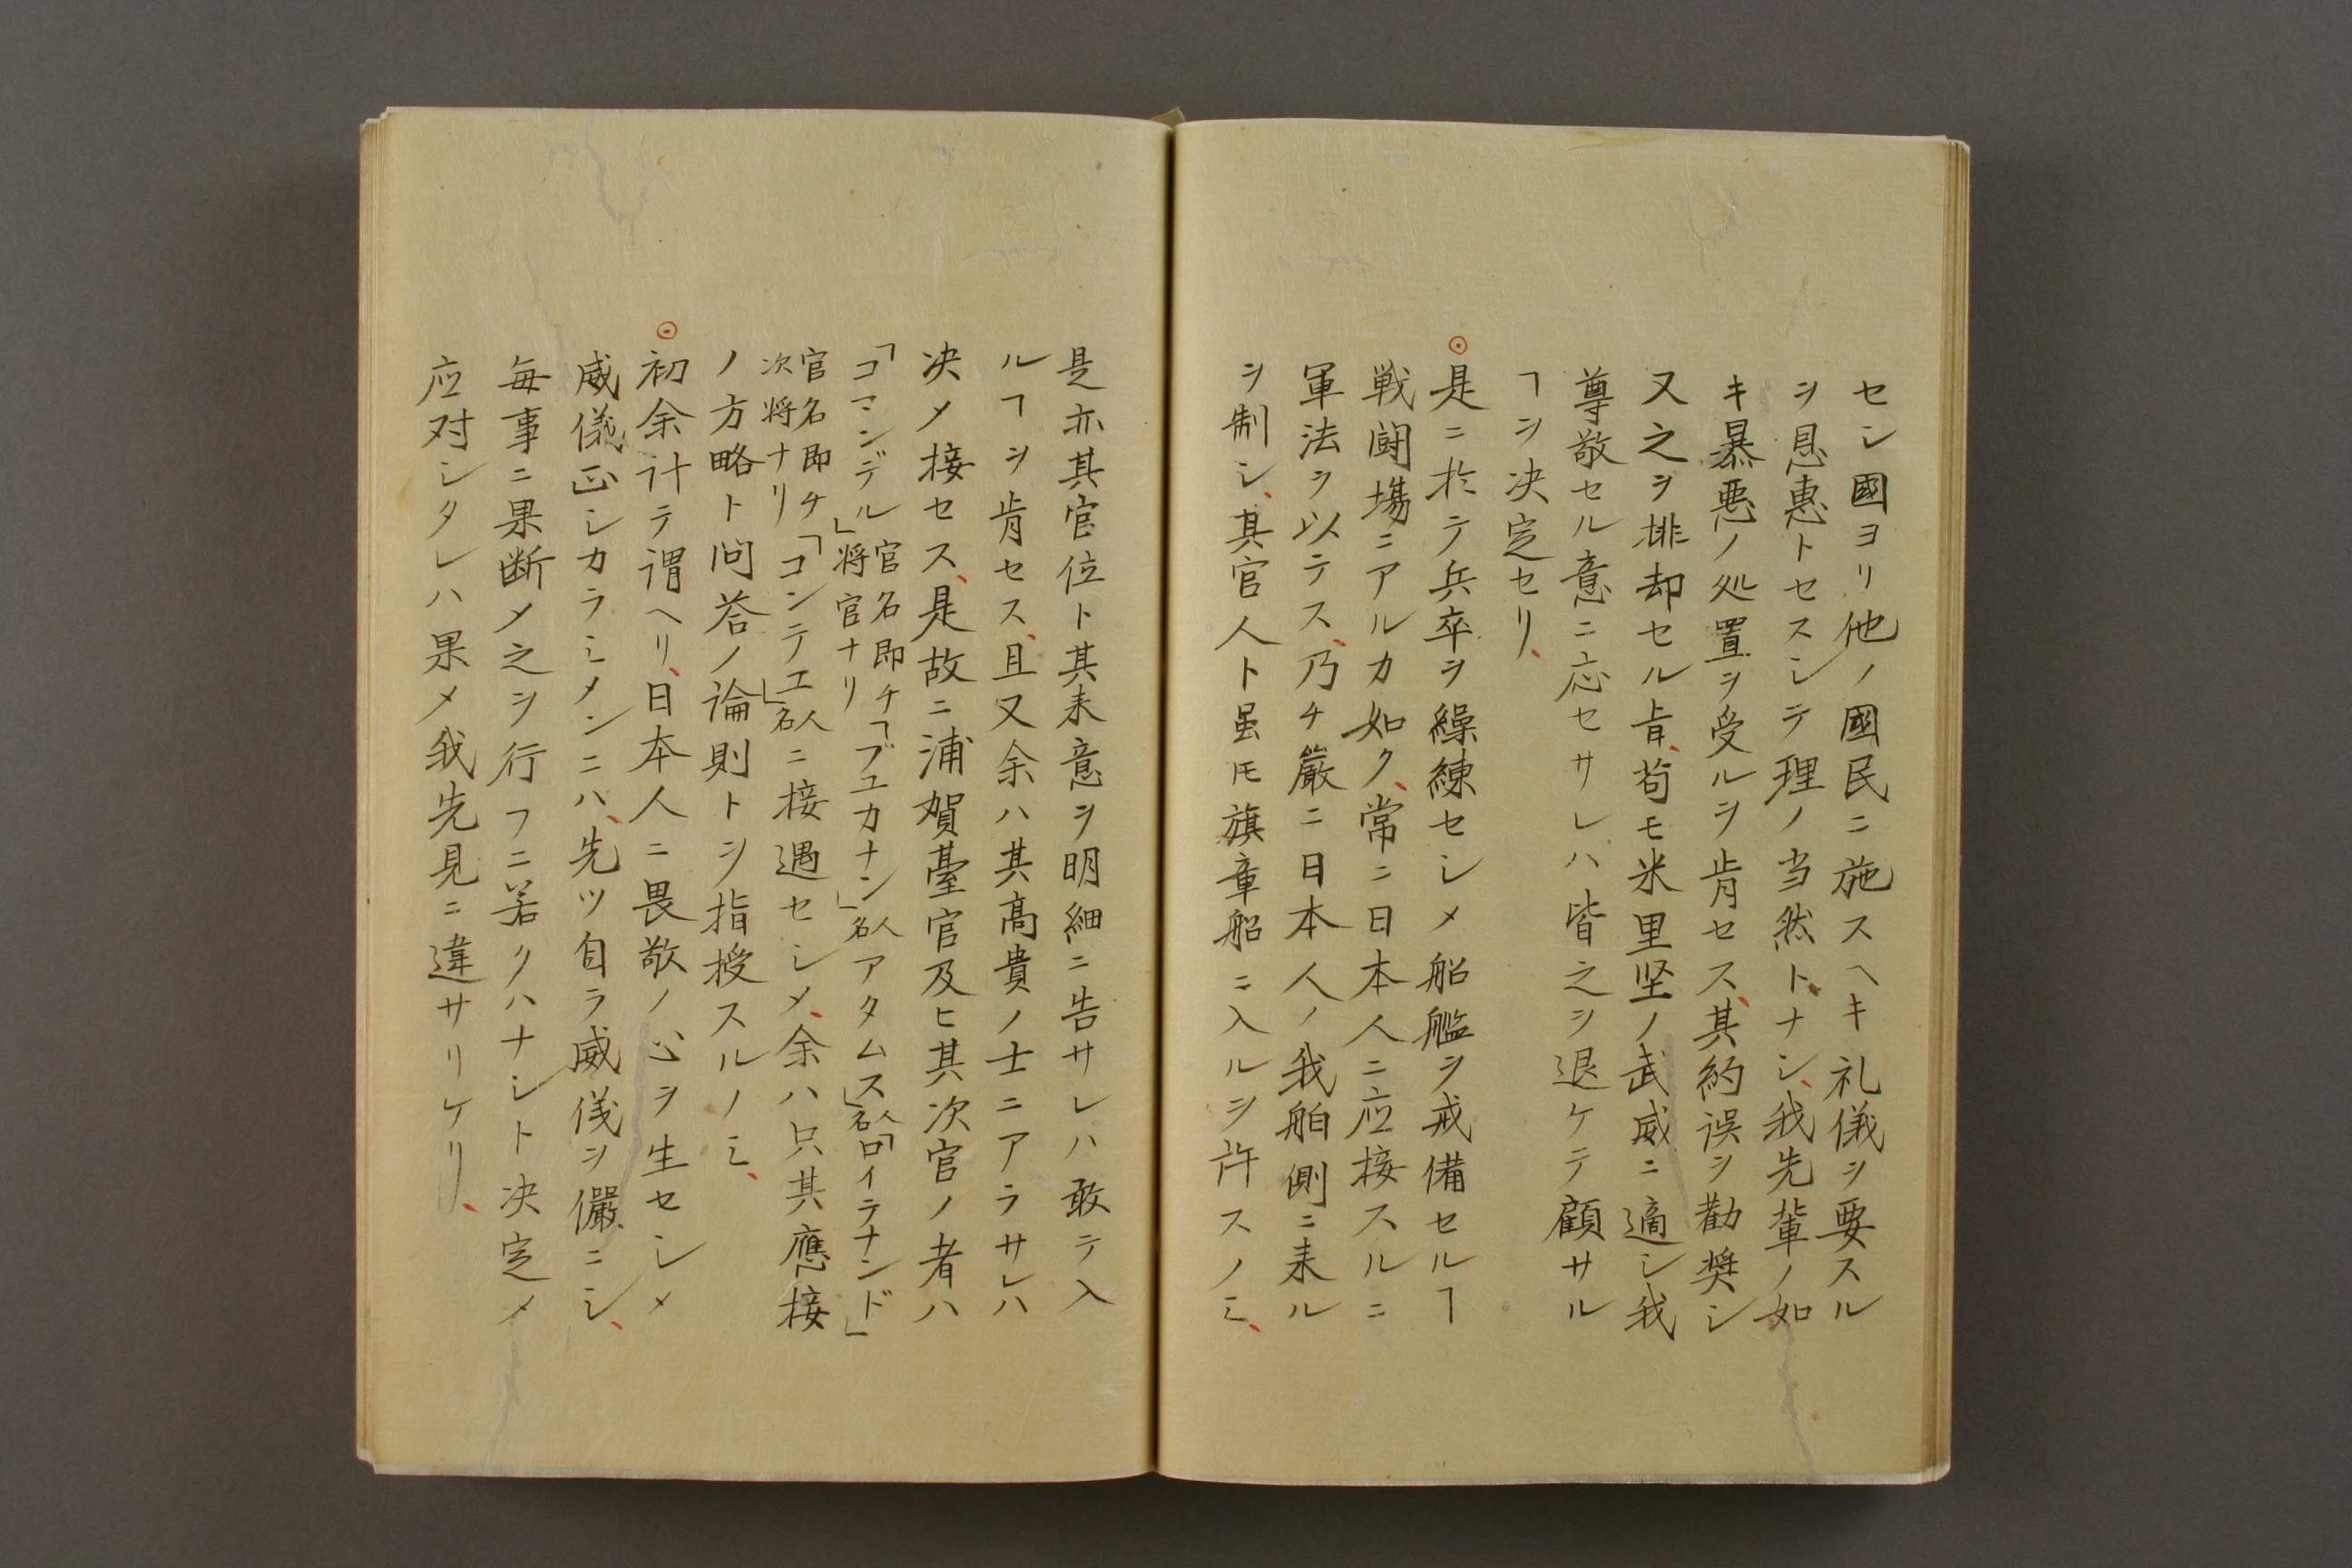 セシ國ヨリ他ノ國民ニ施スヘキ礼儀ヲ要スル
ヲ恩惠トセスシテ理ノ当然トナシ、我先輩ノ如
キ暴悪ノ処置ヲ受ルヲ肯セス、其約誤ヲ勸奨シ
又之ヲ排却セル㫖、苟モ米里坚ノ武威ニ適シ我
尊敬セル意ニ応セサレハ皆之ヲ退ケテ顧サル
ヿヲ決定セリ、
⦿是ニ於テ兵卒ヲ繰練セシメ船艦ヲ戒備セルヿ
戦闘塲ニアルカ如ク、常ニ日本人ニ応接スルニ
軍法ヲ以テス、乃チ厳ニ日本人ノ我舶側ニ来ル
ヲ制シ、其官人ト虽𪜈旗章船ニ入ルヲ許スノミ、
是亦其官位ト其来意ヲ明細ニ告サレハ敢テ入
ルヿヲ肯セス、且又余ハ其高貴ノ士ニアラサレハ
决メ接セス、是故ニ浦賀臺官及ヒ其次官ノ者ハ
「コマンデル」官名即チ将官ナリ「ブユカナン」人名アタムス」人名「ロイテナンド」
官名即チ次将ナリ「コンテエ」人名ニ接遇セシメ、余ハ只其應接
ノ方略ト问荅ノ論則トヲ指授スルノミ、
⦿初余计テ謂ヘリ、日本人ニ畏敬ノ心ヲ生セシメ
威儀正シカラシメンニハ、先ツ自ラ威儀ヲ儼ニシ、
毎事ニ果断メ之ヲ行フニ若クハナシト决定メ
应対シタレハ果メ我先見ニ違サリケリ、